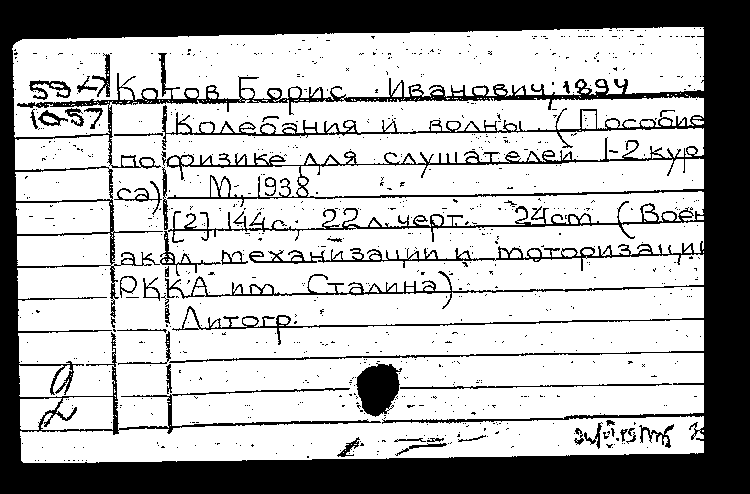 59-7 Котов, Борис Иванович, 1894
10-57 Колебания и волны. (Пособие
по физике для слушателей 1-2 кур-
са). М., 1938.
[2], 144 с.; 22 л. черт. 24 cm. (Воен.
акад. механизации и моторизации
РККА им. Сталина).
Литогр.
2